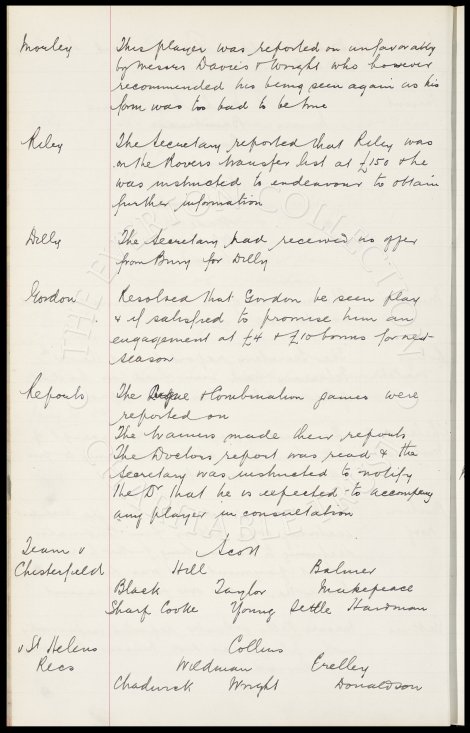 Morley This player was reported on unfavorably
by Messrs Davies & Wright who however
recommended his being seen again as his
form was too bad to be true
Riley The Secretary reported that Riley was
on the Rovers transfer list at £150 & he
was instructed to endeavour to obtain
further information
Dilly The Secretary had received no offer
from Bury for Dilly
Gordon Resolved that Gordon be seen play
& if satisfied to promise him an
engagement at £4 & £10 bonus for next
season
Reports The League & Combination games were
reported on
The trainers made their reports
The Doctors report was read & the
Secretary was instructed to notify
the Dr that he is expected to accompany
any player in consultation
Team v Scott
Chesterfield Hill Balmer
Black Taylor Makepeace
Sharp Cooke Young Settle Hardman
v St Helens Collins
Recs Wildman Crelley
Chadwick Wright Donaldson
THE EVERTON COLLECTION
CHARITABLE